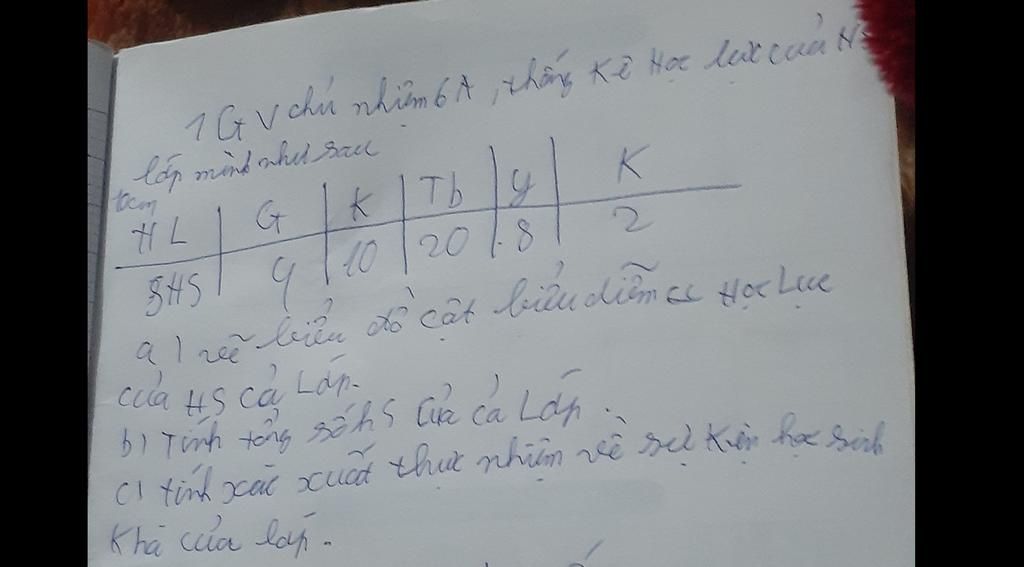 1 GV chủ nhiệm 6A, thống kê Học lực của HS
lớp mình như sau
HL G K Tb y K
SHS 9 10 20 8 2
a) vẽ biểu đồ cột biểu diễn Học Lực
của HS cả Lớp.
b) Tính tổng số hS của cả Lớp.
c) tính xác xuất thực nhiệm về sự kiện học sinh
Khá của lớp.